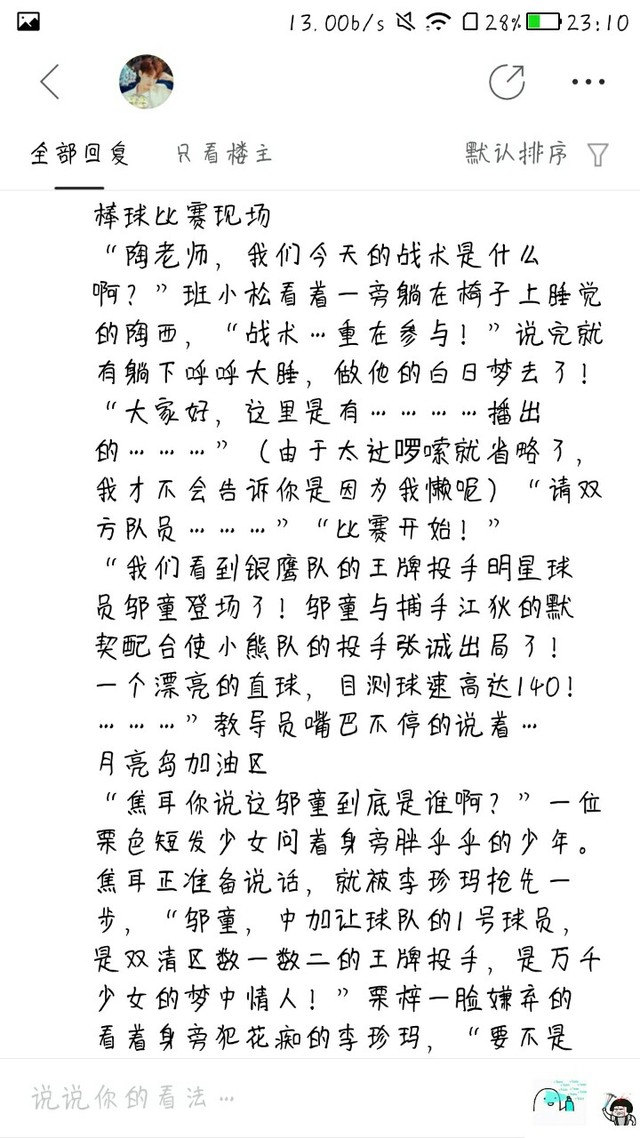 13.00b/s 28% 23:10
全部回复 只看楼主 默认排序
棒球比赛现场
“陶老师，我们今天的战术是什么
啊？”班小松看着一旁躺在椅子上睡觉
的陶西，“战术…重在参与！”说完就
有躺下呼呼大睡，做他的白日梦去了！
“大家好，这里是有…………播出
的………”（由于太过啰嗦就省略了，
我才不会告诉你是因为我懒呢）“请双
方队员………”“比赛开始！”
“我们看到银鹰队的王牌投手明星球
员邬童登场了！邬童与捕手江狄的默
契配合使小熊队的投手张诚出局了！
一个漂亮的直球，目测球速高达140！
………”教导员嘴巴不停的说着…
月亮岛加油区
“焦耳你说这邬童到底是谁啊？”一位
栗色短发少女问着身旁胖乎乎的少年。
焦耳正准备说话，就被李珍玛抢先一
步，“邬童，中加让球队的1号球员，
是双清区数一数二的王牌投手，是万千
少女的梦中情人！”栗梓一脸嫌弃的
看着身旁犯花痴的李珍玛，“要不是
说说你的看法…